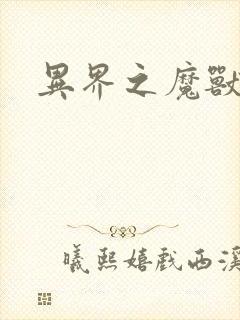 異界之魔獸
曦熙嬉戲西溪